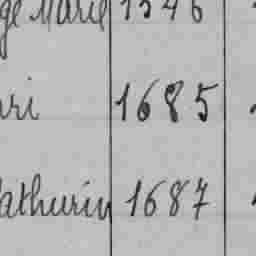 ge Marie 1346
ri 1685
athurin 1687